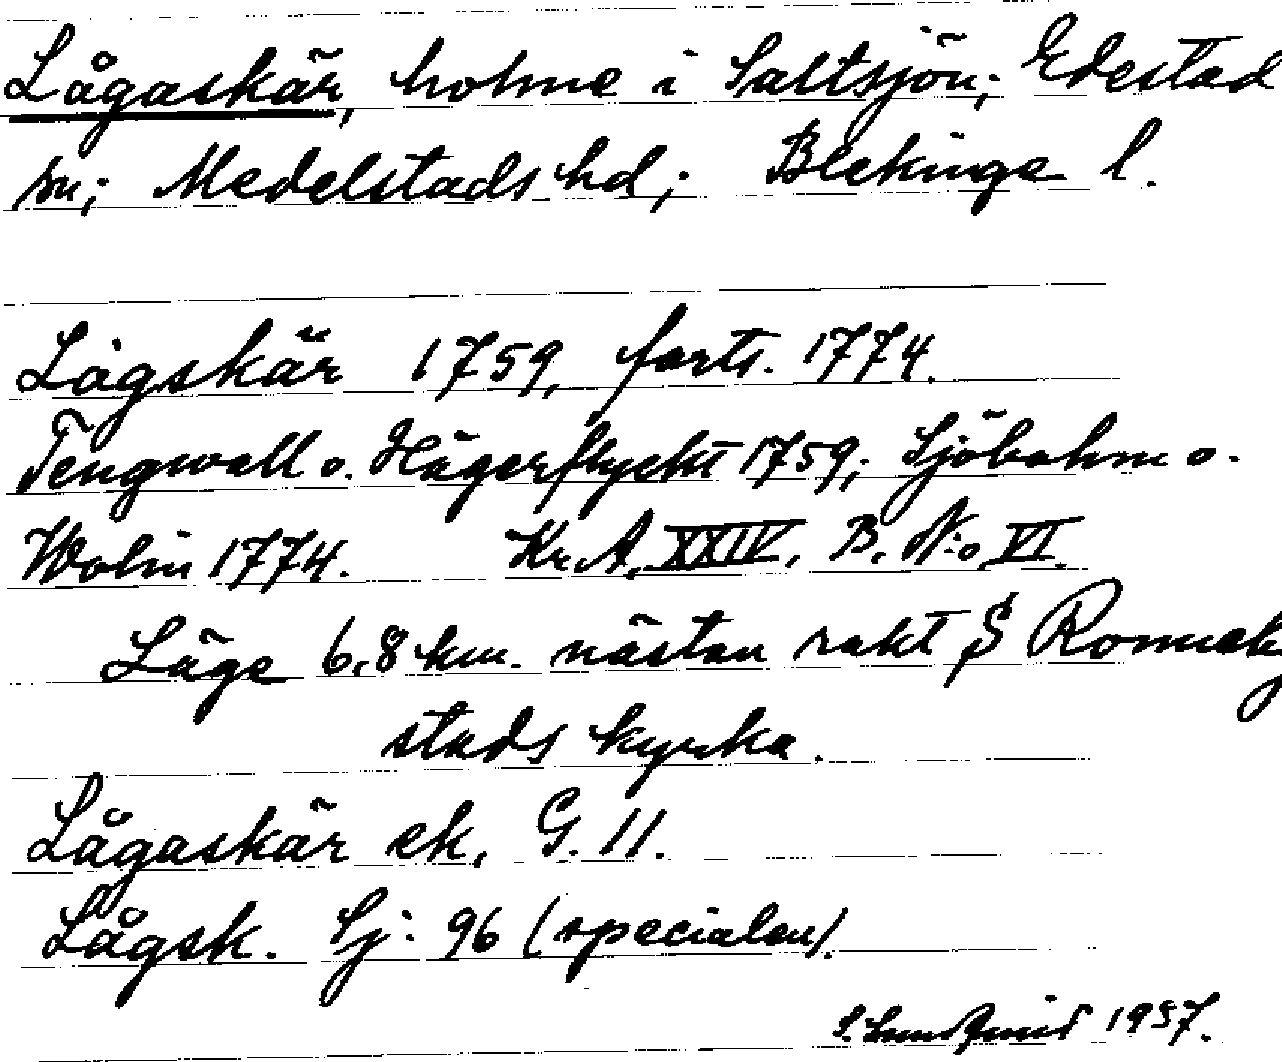 Lågaskär, holme i Saltsjön; Edestad
sn; Medelstads hd; Blekinge l.
Lågskär 1759, forts. 1774.
Tengwall o. Hägerflycht 1759; Sjöbohm o.
Wolin 1774. Kr.A. XXIV. B. N:o VI.
Läge 6,8 km. nästan rakt S Ronneby
stads kyrka.
Lågaskär ek. G. 11.
Lågsk. Sj: 96 (specialen).
1937.